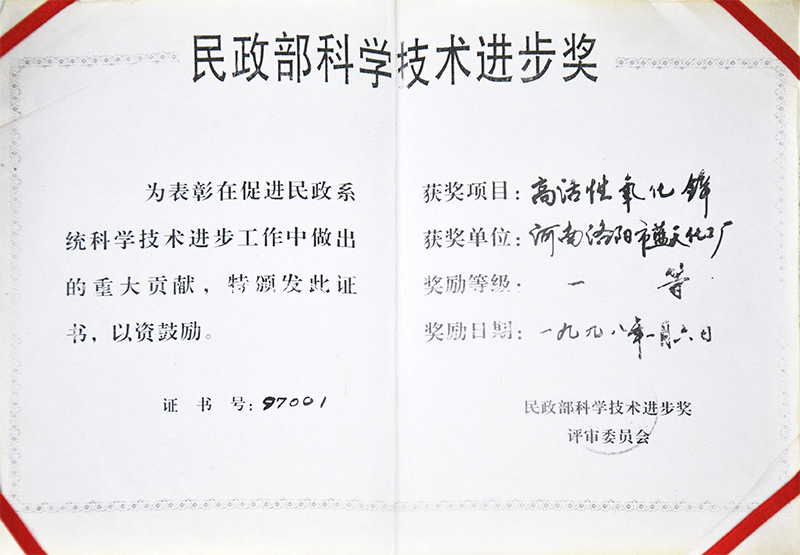 民政部科学技术进步奖
为表彰在促进民政系
统科学技术进步工作中做出
的重大贡献，特颁发此证
书，以资鼓励。
证 书 号：97001
获奖项目：高活性氧化锌
获奖单位：河南洛阳市蓝天化工厂
奖励等级：一 等
奖励日期：一九九八年一月六日
民政部科学技术进步奖
评审委员会